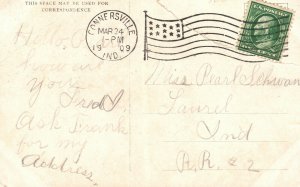 THIS SPACE MAY BE USED FOR
CORRESPONDENCE
CONNERSVILLE
MAR 24
1-PM
1909
IND.
U.S. POSTAGE
How are
you
Fred
Ask Frank
for my
Address
Miss Pearl
Laurel
Ind
R.R. 2